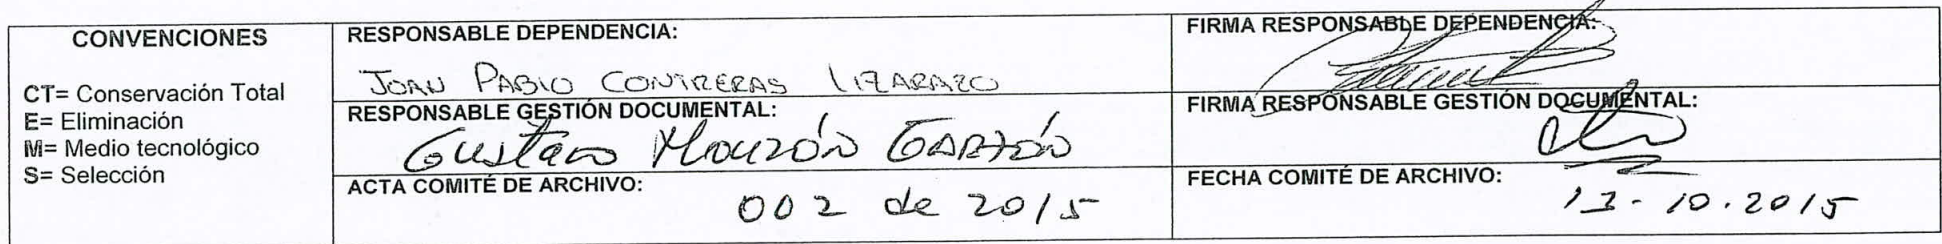 CONVENCIONES
CT= Conservación Total
E= Eliminación
M= Medio tecnológico
S= Selección
RESPONSABLE DEPENDENCIA:
JOAN PABLO CONTRERAS LIZARAZO
RESPONSABLE GESTIÓN DOCUMENTAL:
Gustavo Monzón Garzón
ACTA COMITÉ DE ARCHIVO:
002 de 2015
FIRMA RESPONSABLE DEPENDENCIA:
FIRMA RESPONSABLE GESTIÓN DOCUMENTAL:
FECHA COMITÉ DE ARCHIVO:
13-10.2015